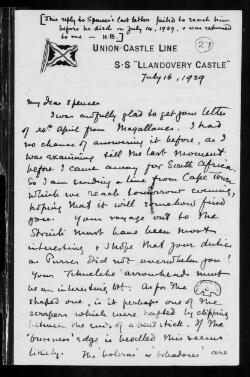 [This reply to Spencer's last letter failed to reach him
before he died on July 14, 1929, & was returned
to me — H.B.]
27
UNION-CASTLE LINE
S·S "LLANDOVERY CASTLE"
July 16, 1929
My dear Spencer
I was awfully glad to get your letter
of 20th April from Magallanes. I had
no chance of answering it before, as I
was examining till the last moment
before I came away for South Africa.
So I am sending a line from Cape Town
which we reach tomorrow evening,
hoping that it will somehow find
you. Your voyage out to the
Straits must have been most
interesting & I hope that your duties
as Purser did not overwhelm you!
Your Tehuelche arrowheads must
be an interesting lot. As for the
shaped one, is it perhaps one of the
scrapers which were hafted by clipping
between the ends of a bent stick. If the
'business' edge is bevelled this seems
likely. The 'boleras' or boleadores are